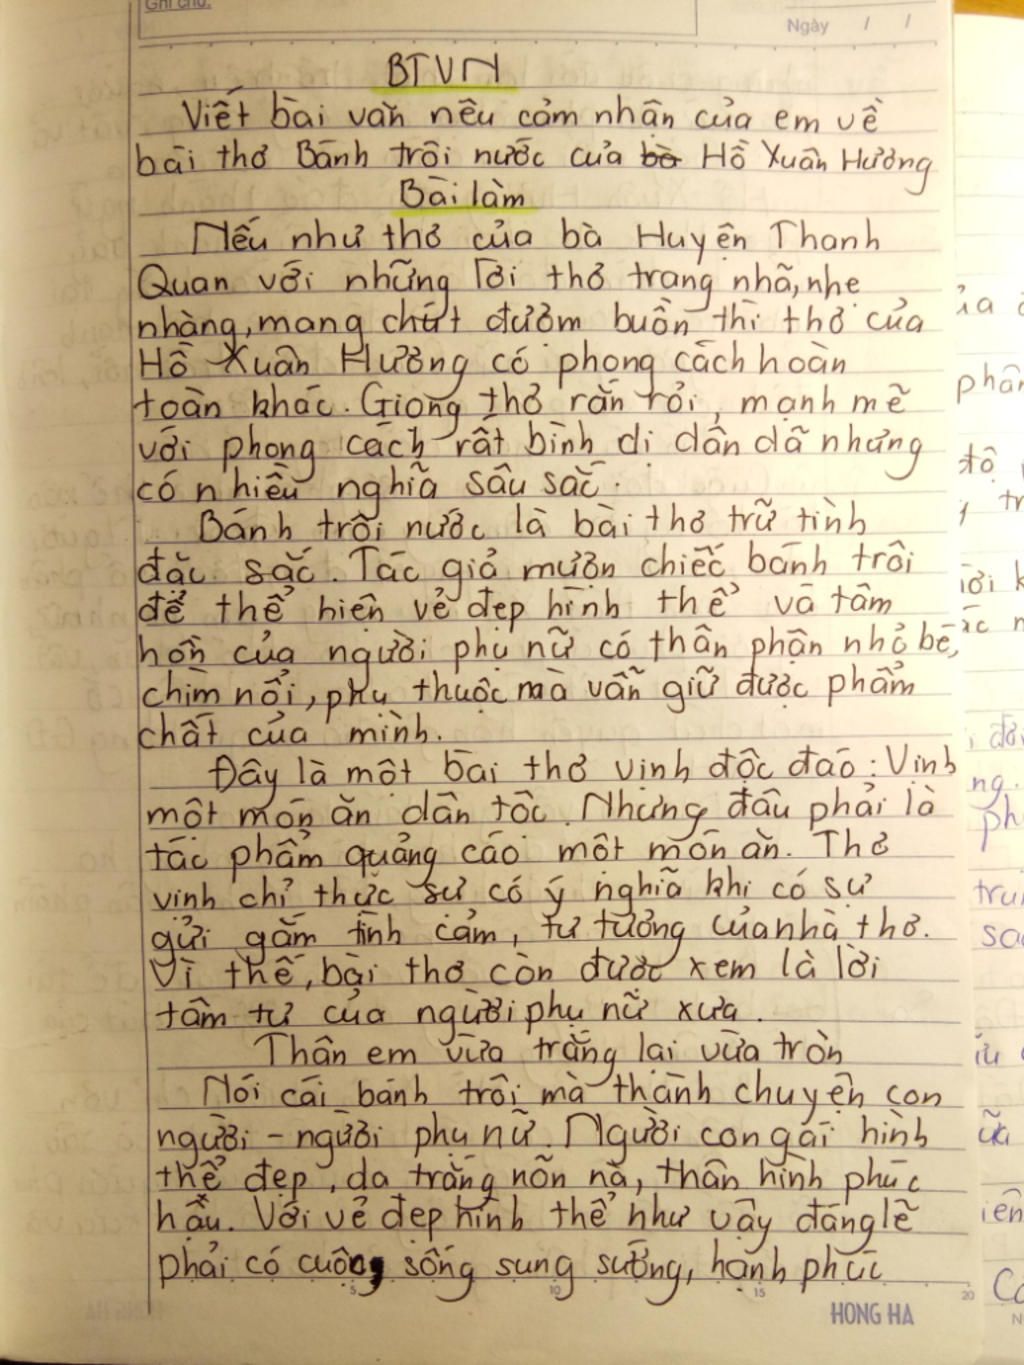 Ghi chú:
Ngày / /
BTVN
Viết bài văn nêu cảm nhận của em về
bài thơ Bánh trôi nước của bà Hồ Xuân Hương
Bài làm
Nếu như thơ của bà Huyện Thanh
Quan với những lời thơ trang nhã, nhẹ
nhàng, mang chút đượm buồn thì thơ của
Hồ Xuân Hương có phong cách hoàn
toàn khác. Giọng thơ rắn rỏi, mạnh mẽ
với phong cách rất bình dị dân dã nhưng
có nhiều nghĩa sâu sắc.
Bánh trôi nước là bài thơ trữ tình
đặc sắc. Tác giả mượn chiếc bánh trôi
để thể hiện vẻ đẹp hình thể và tâm
hồn của người phụ nữ có thân phận nhỏ bé,
chìm nổi, phụ thuộc mà vẫn giữ được phẩm
chất của mình.
Đây là một bài thơ vịnh độc đáo: Vịnh
một món ăn dân tộc. Nhưng đâu phải là
tác phẩm quảng cáo một món ăn. Thơ
vịnh chỉ thực sự có ý nghĩa khi có sự
gửi gắm tình cảm, tư tưởng của nhà thơ.
Vì thế, bài thơ còn được xem là lời
tâm tư của người phụ nữ xưa.
Thân em vừa trắng lại vừa tròn
Nói cái bánh trôi mà thành chuyện con
người - người phụ nữ. Người con gái hình
thể đẹp, da trắng nõn nà, thân hình phúc
hậu. Với vẻ đẹp hình thể như vậy đáng lẽ
phải có cuộc sống sung sướng, hạnh phúc
5 10 15 20
HONG HA